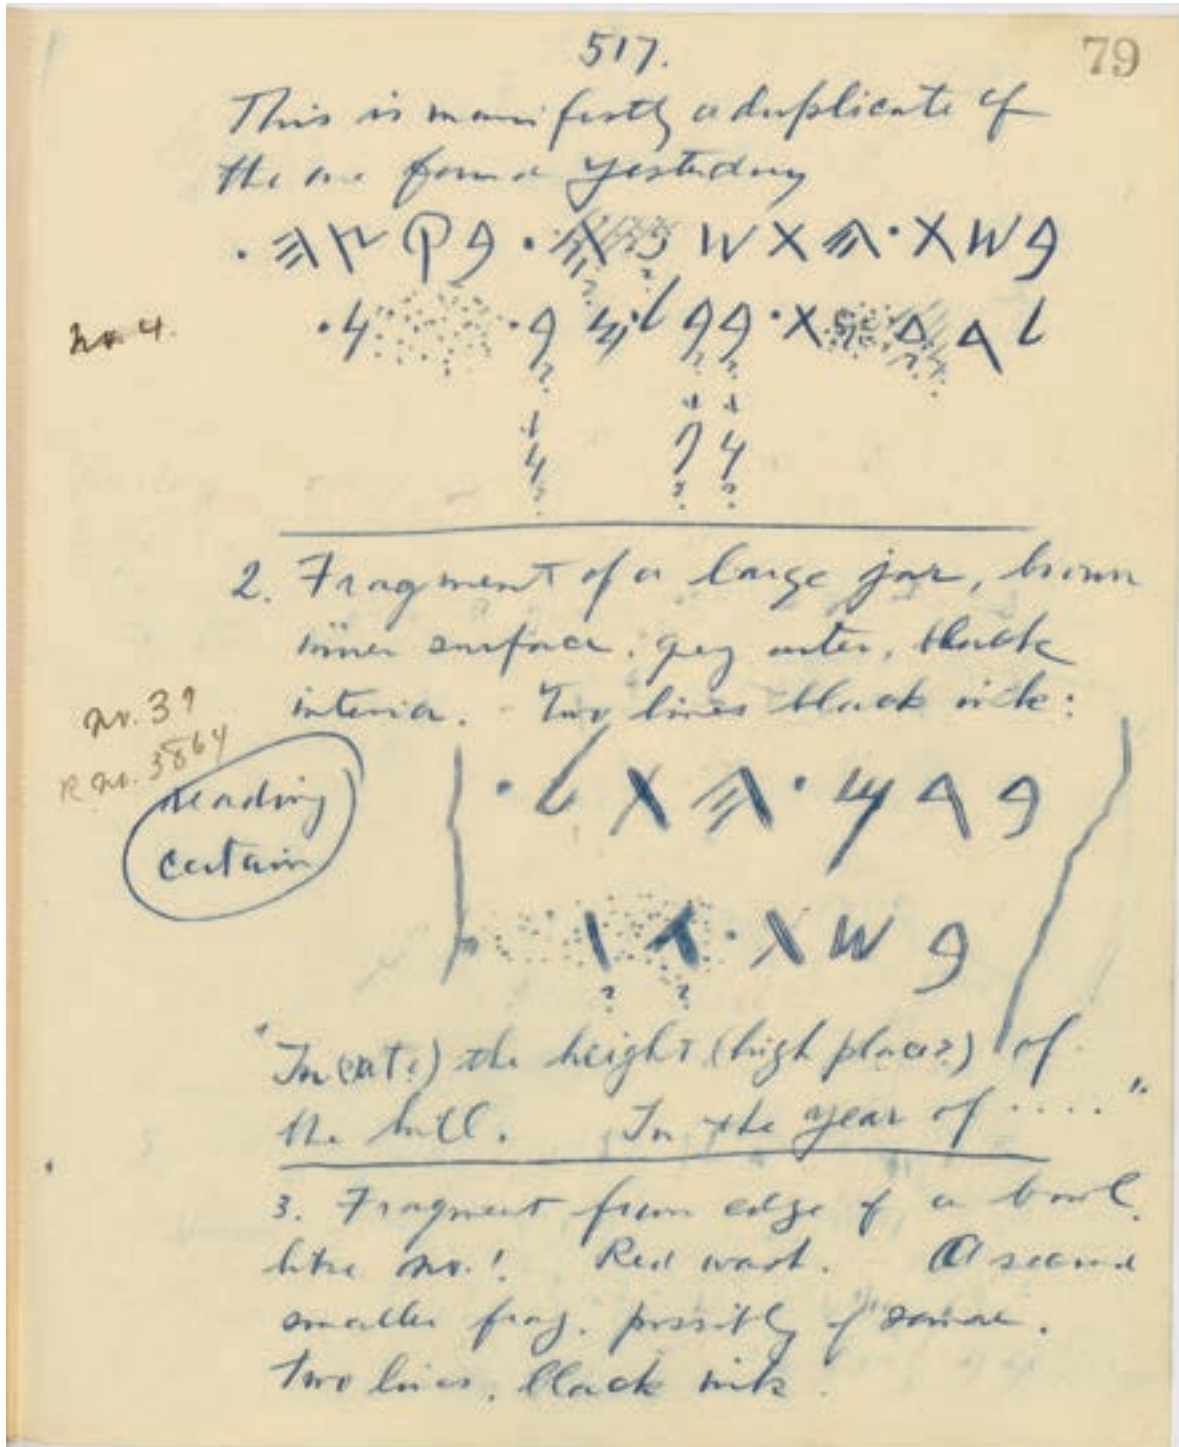 79
517.
This is manifestly a duplicate of
the one found yesterday
𐤁𐤔𐤕·𐤄𐤕𐤔 ·𐤁𐤒𐤑𐤄·
No. 4.
2. Fragment of a large jar, brown
inner surface, grey outer, black
interior. - Two lines black ink:
No. 39
R No. 3864
reading
certain
𐤁𐤓𐤌·𐤄𐤕𐤋·
𐤁𐤔𐤕·
"In (at?) the height (high place?) of
the hill. In the year of ...."
3. Fragment from edge of a bowl
like No. 1. Red wash. A second
smaller frag. possibly of same.
Two lines, black ink.